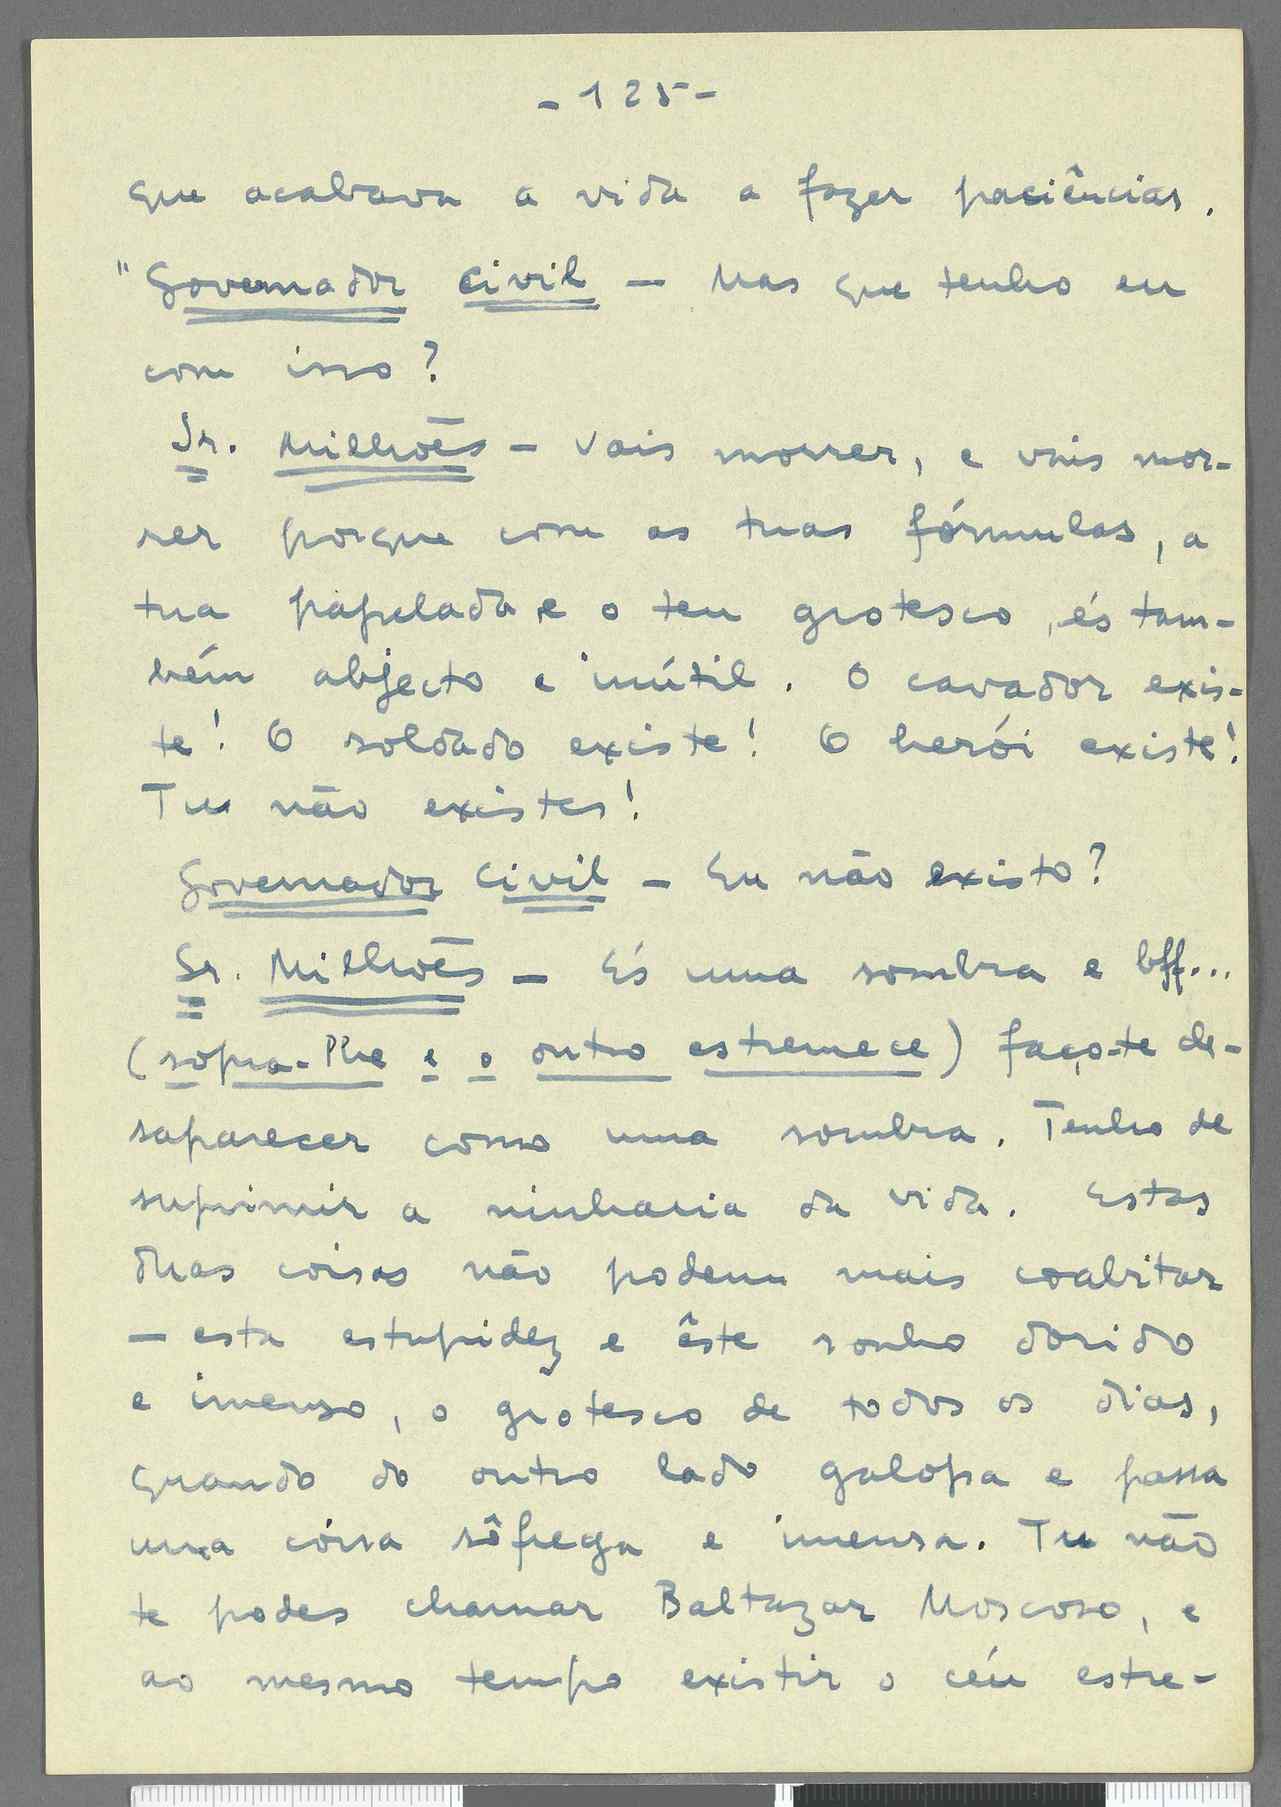 - 125 -
que acabava a vida a fazer paciências.
"Governador Civil — Mas que tenho eu
com isso?
Sr. Milhões — Vais morrer, e vais mor-
rer porque com as tuas fórmulas, a
tua papelada e o teu grotesco, és tam-
bém abjecto e inútil. O cavador exis-
te! O soldado existe! O herói existe!
Tu não existes!
Governador Civil — Eu não existo?
Sr. Milhões — És uma sombra e bff...
(sopra-lhe e o outro estremece) faço-te de-
saparecer como uma sombra. Tenho de
suprimir a ninharia da vida. Estas
duas coisas não podem mais coabitar
— esta estupidez e êste sonho dorido
e imenso, o grotesco de todos os dias,
quando do outro lado galopa e passa
uma coisa sôfrega e imensa. Tu não
te podes chamar Baltazar Moscoso, e
ao mesmo tempo existir o céu estre-